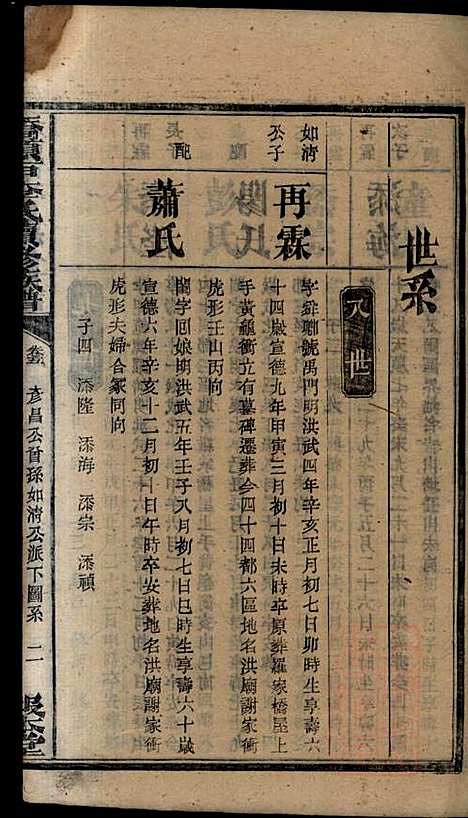 世系
八世
如清公子
再霖
字舜聯號禹門明洪武四年辛亥正月初七日卯時生享壽六
十四歲宣德九年甲寅三月初十日未時卒原葬羅家橋屋上
手黃龍衝立有墓碑遷葬今四十四都六區地名洪廟謝家衝
虎形壬山丙向
配
蕭氏
閨字回娘明洪武五年壬子八月初七日巳時生享壽六十歲
宣德六年辛亥十二月初十日午時卒安葬地名洪廟謝家衝
虎形夫婦合冢同向
子四 添隆 添海 添宗 添禎
李氏續修族譜
彥昌公首孫如清公派下圖系
二